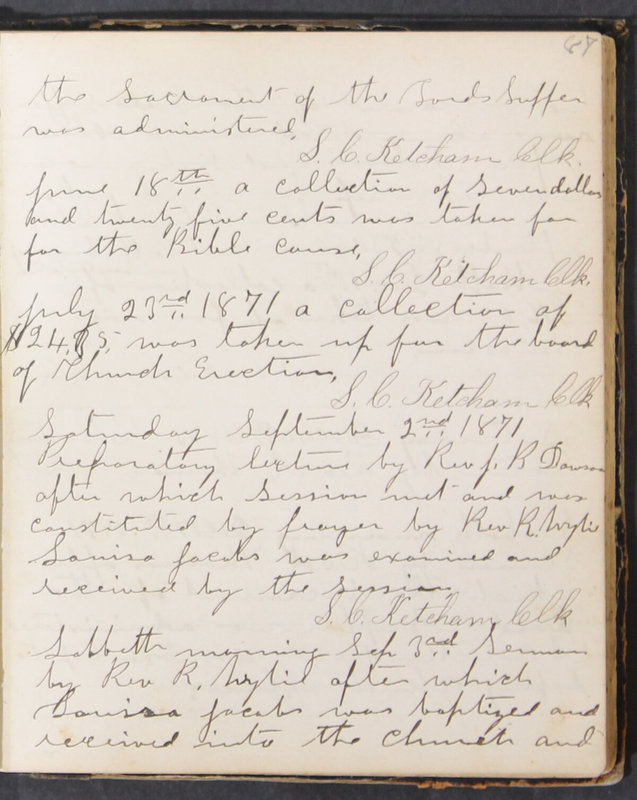 the Sacrament of the Lords Supper
was administered,
S. C. Ketcham Clk.
June 18th a collection of Seven dollars
and twenty five cents was taken for
for the Bible cause,
S. C. Ketcham Clk.
July 23rd 1871 a collection of
was taken up for the board
of Church Erection,
S. C. Ketcham Clk
Saturday September 2nd 1871
Preparatory lecture by Rev J. R Dawson
after which Session met and was
constituted by prayer by Rev R. Wylie
Louisa Jacobs was examined and
received by the session
S. C. Ketcham Clk
Sabbath morning Sep 3rd Sermon
by Rev R. Wylie after which
Louisa Jacobs was baptized and
received into the church and